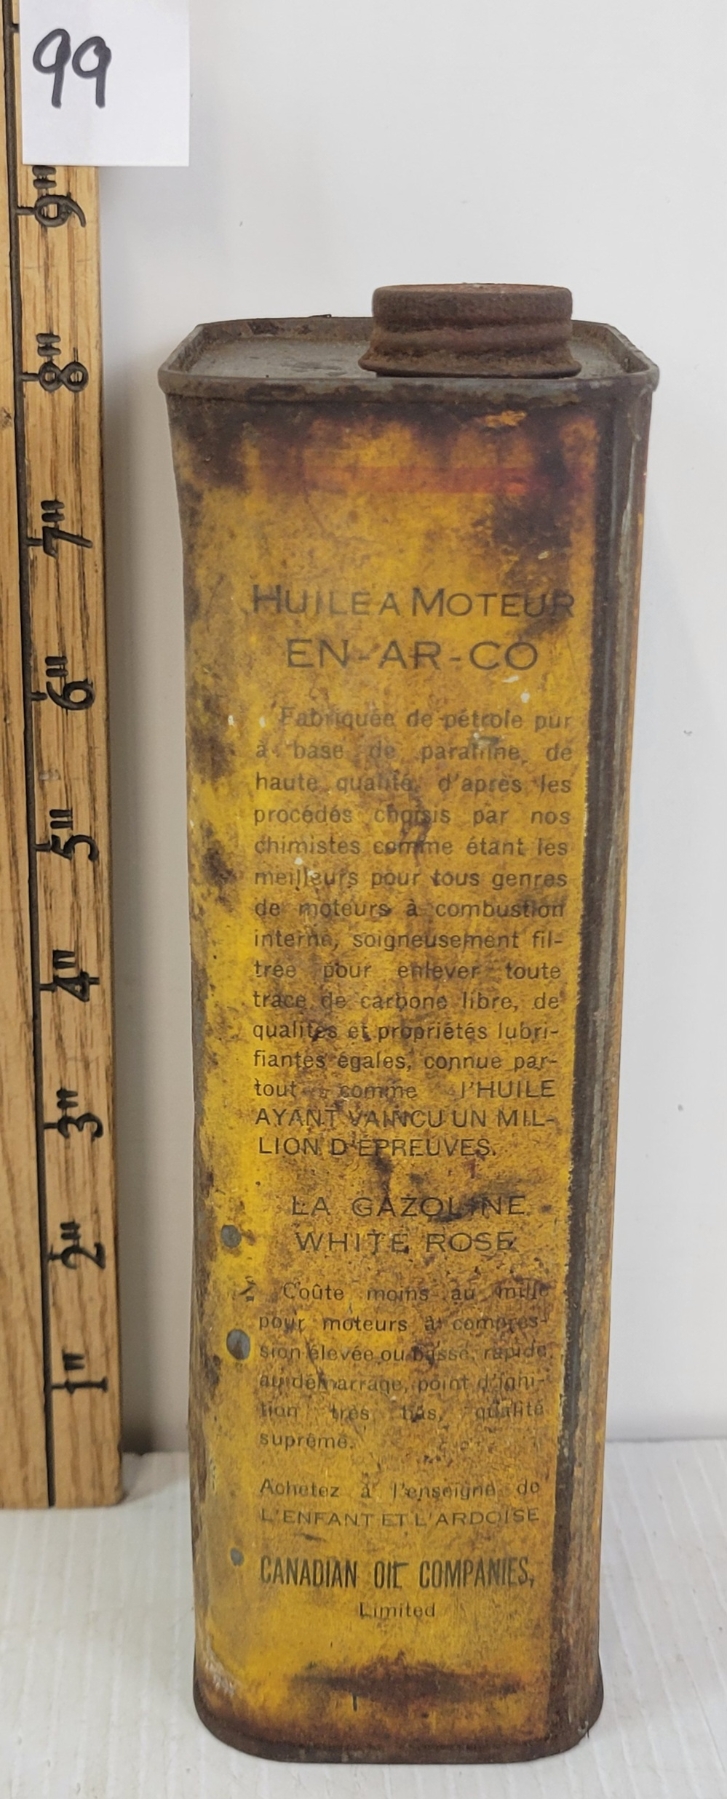 99
9"
8"
7"
6"
5"
4"
3"
2"
1"
HUILE A MOTEUR
EN-AR-CO
Fabriquée de pétrole pur
à base de paraffine, de
haute qualité, d'après les
procédés choisis par nos
chimistes comme étant les
meilleurs pour tous genres
de moteurs à combustion
interne, soigneusement fil-
trée pour enlever toute
trace de carbone libre, de
qualités et propriétés lubri-
fiantes égales, connue par-
tout comme l'HUILE
AYANT VAINCU UN MIL-
LION D'ÉPREUVES.
LA GAZOLINE
WHITE ROSE
Coûte moins au mille
pour moteurs à compres-
sion élevée ou basse, rapide
au démarrage, point d'igni-
tion très bas, qualité
suprême.
Achetez à l'enseigne de
L'ENFANT ET L'ARDOISE
CANADIAN OIL COMPANIES,
Limited